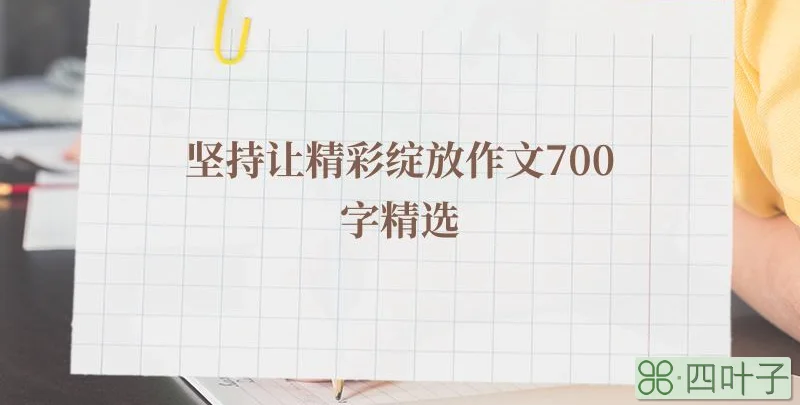 坚持让精彩绽放作文700
字精选
四叶子